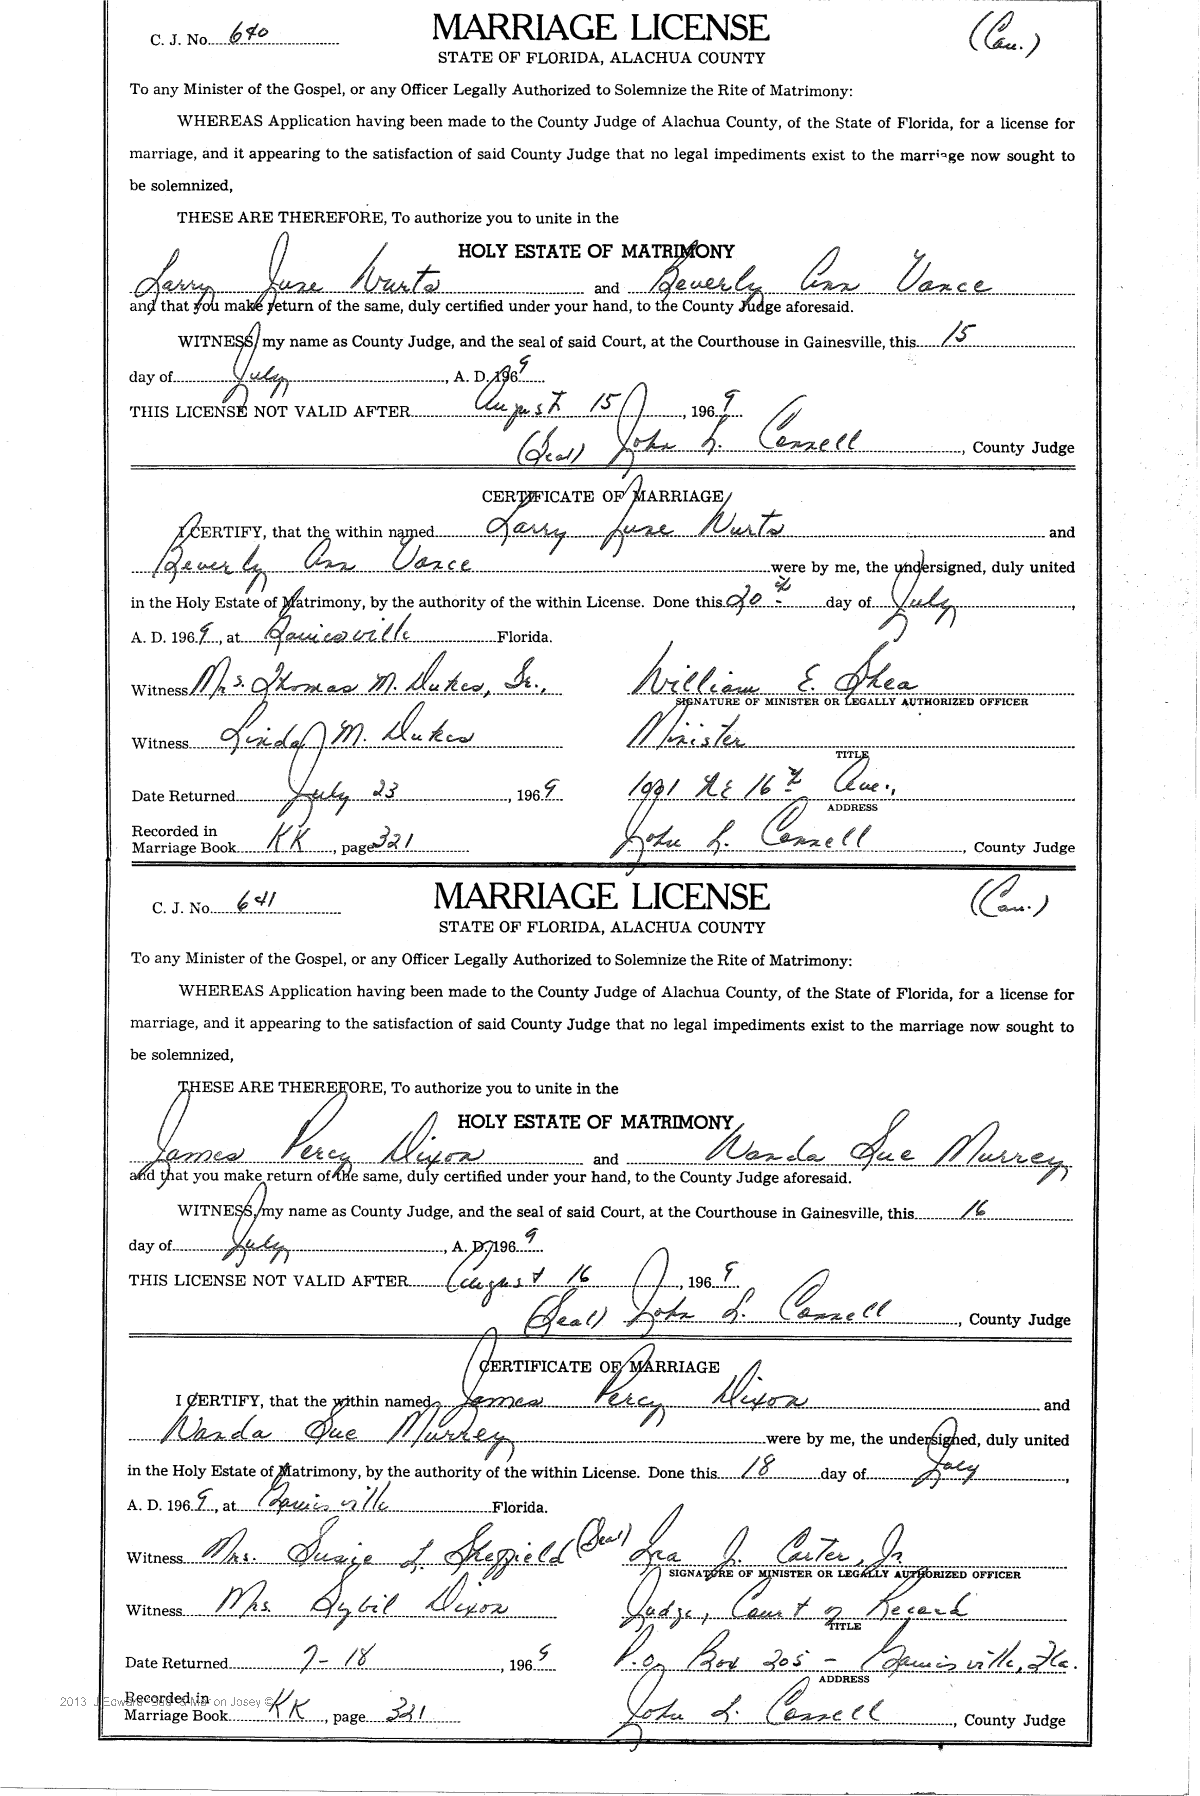 C. J. No. 640 MARRIAGE LICENSE (Cau.)
STATE OF FLORIDA, ALACHUA COUNTY
To any Minister of the Gospel, or any Officer Legally Authorized to Solemnize the Rite of Matrimony:
WHEREAS Application having been made to the County Judge of Alachua County, of the State of Florida, for a license for
marriage, and it appearing to the satisfaction of said County Judge that no legal impediments exist to the marriage now sought to
be solemnized,
THESE ARE THEREFORE, To authorize you to unite in the
HOLY ESTATE OF MATRIMONY
Larry June Wurts and Beverly Ann Vance
and that you make return of the same, duly certified under your hand, to the County Judge aforesaid.
WITNESS, my name as County Judge, and the seal of said Court, at the Courthouse in Gainesville, this 15
day of July, A. D. 1969
THIS LICENSE NOT VALID AFTER August 15, 1969
(Seal) John L. Connell, County Judge
CERTIFICATE OF MARRIAGE
I CERTIFY, that the within named Larry June Wurts and
Beverly Ann Vance were by me, the undersigned, duly united
in the Holy Estate of Matrimony, by the authority of the within License. Done this 20th day of July,
A. D. 1969, at Gainesville Florida.
Witness Mrs. Thomas M. Dukes, Sr., William E. Shea
SIGNATURE OF MINISTER OR LEGALLY AUTHORIZED OFFICER
Witness Linda M. Dukes Minister
TITLE
Date Returned July 23, 1969 1001 NE 16th Ave.,
ADDRESS
Recorded in
Marriage Book KK, page 321 John L. Connell, County Judge
C. J. No. 641 MARRIAGE LICENSE (Cau.)
STATE OF FLORIDA, ALACHUA COUNTY
To any Minister of the Gospel, or any Officer Legally Authorized to Solemnize the Rite of Matrimony:
WHEREAS Application having been made to the County Judge of Alachua County, of the State of Florida, for a license for
marriage, and it appearing to the satisfaction of said County Judge that no legal impediments exist to the marriage now sought to
be solemnized,
THESE ARE THEREFORE, To authorize you to unite in the
HOLY ESTATE OF MATRIMONY
James Percy Dixon and Wanda Sue Murrey
and that you make return of the same, duly certified under your hand, to the County Judge aforesaid.
WITNESS, my name as County Judge, and the seal of said Court, at the Courthouse in Gainesville, this 16
day of July, A. D. 1969
THIS LICENSE NOT VALID AFTER August 16, 1969
(Seal) John L. Connell, County Judge
CERTIFICATE OF MARRIAGE
I CERTIFY, that the within named James Percy Dixon and
Wanda Sue Murrey were by me, the undersigned, duly united
in the Holy Estate of Matrimony, by the authority of the within License. Done this 18 day of July,
A. D. 1969, at Gainesville Florida.
Witness Mrs. Susie L. Sheffield (Seal) Ira J. Carter, Jr.
SIGNATURE OF MINISTER OR LEGALLY AUTHORIZED OFFICER
Witness Mrs. Sybil Dixon Judge, Court of Record
TITLE
Date Returned 7-18, 1969 P.O. Box 205 - Gainesville, Fla.
ADDRESS
Recorded in
Marriage Book KK, page 321 John L. Connell, County Judge